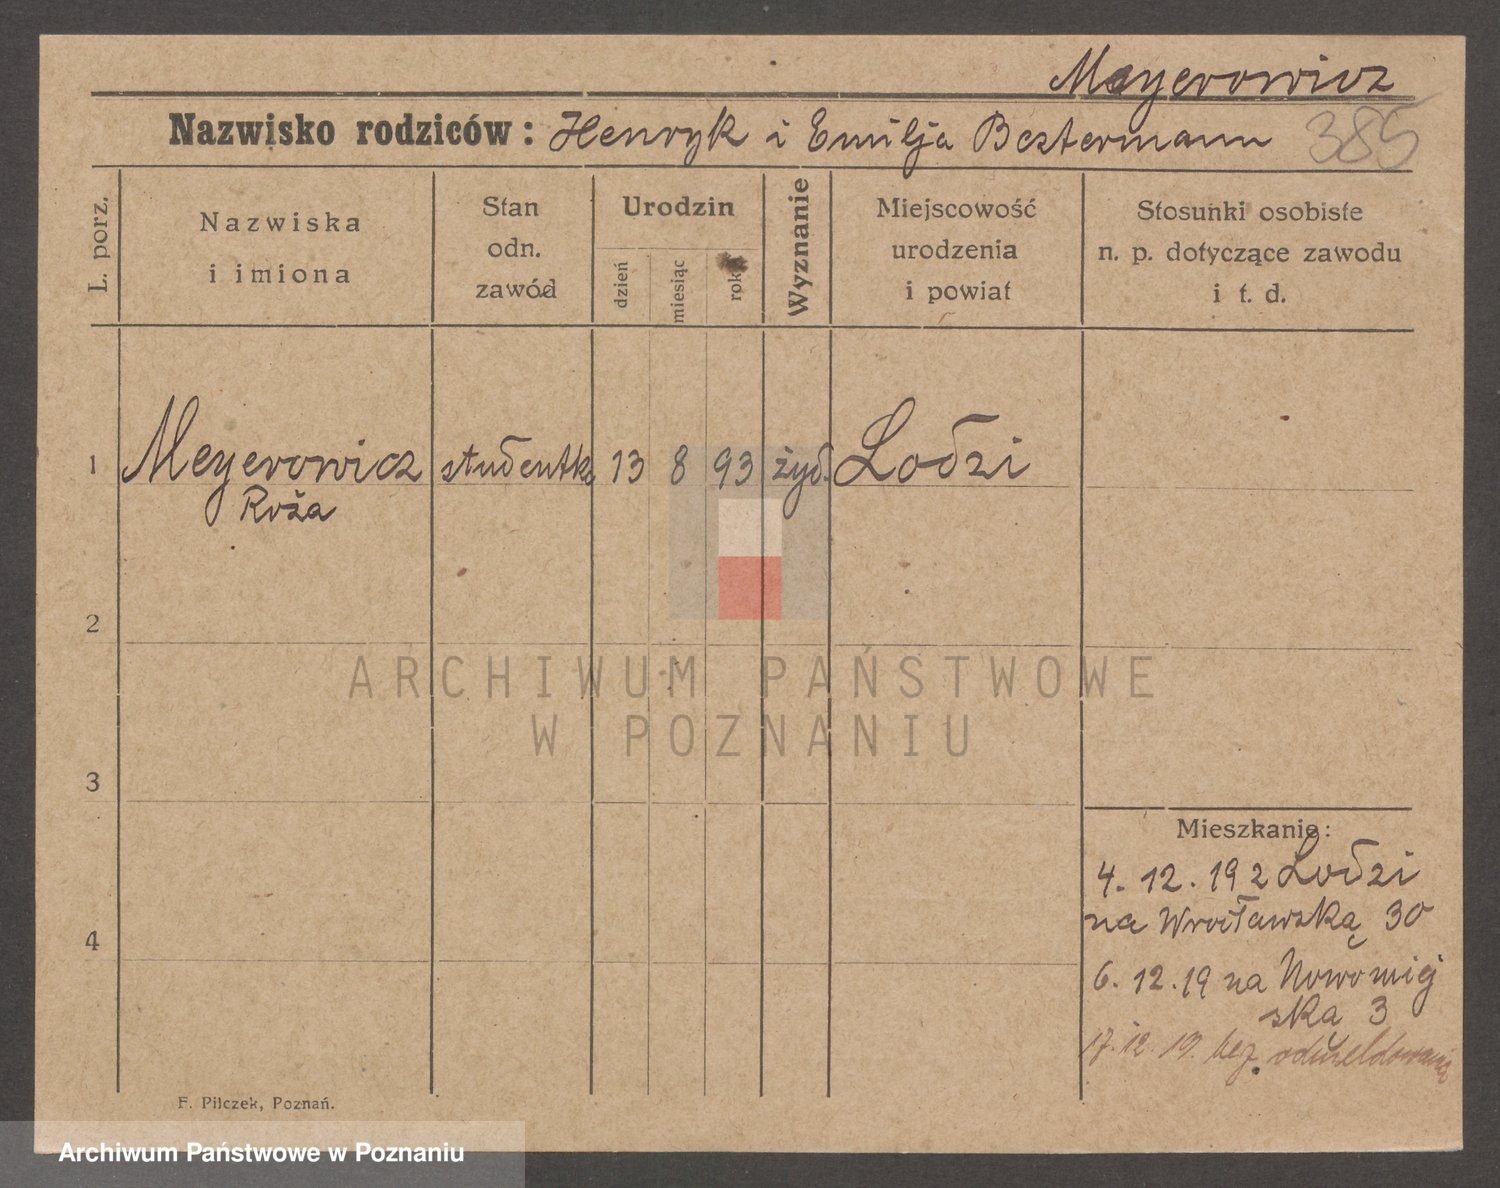 Meyerowicz
Nazwisko rodziców: Henryk i Emilja Bestermann 385
L. porz.
Nazwiska
i imiona
Stan
odn.
zawód
Urodzin
dzień
miesiąc
rok
Wyznanie
Miejscowość
urodzenia
i powiat
Stosunki osobiste
n. p. dotyczące zawodu
i t. d.
1 Meyerowicz studentka 13 8 93 żyd. Lodzi
Roża
2
ARCHIWUM PAŃSTWOWE
W POZNANIU
3
Mieszkanie:
4. 12. 19 z Lodzi
na Wrocławską 30
4
6. 12. 19 na Nowomiej
ską 3
17. 12. 19. bez
F. Pilczek, Poznań.
Archiwum Państwowe w Poznaniu